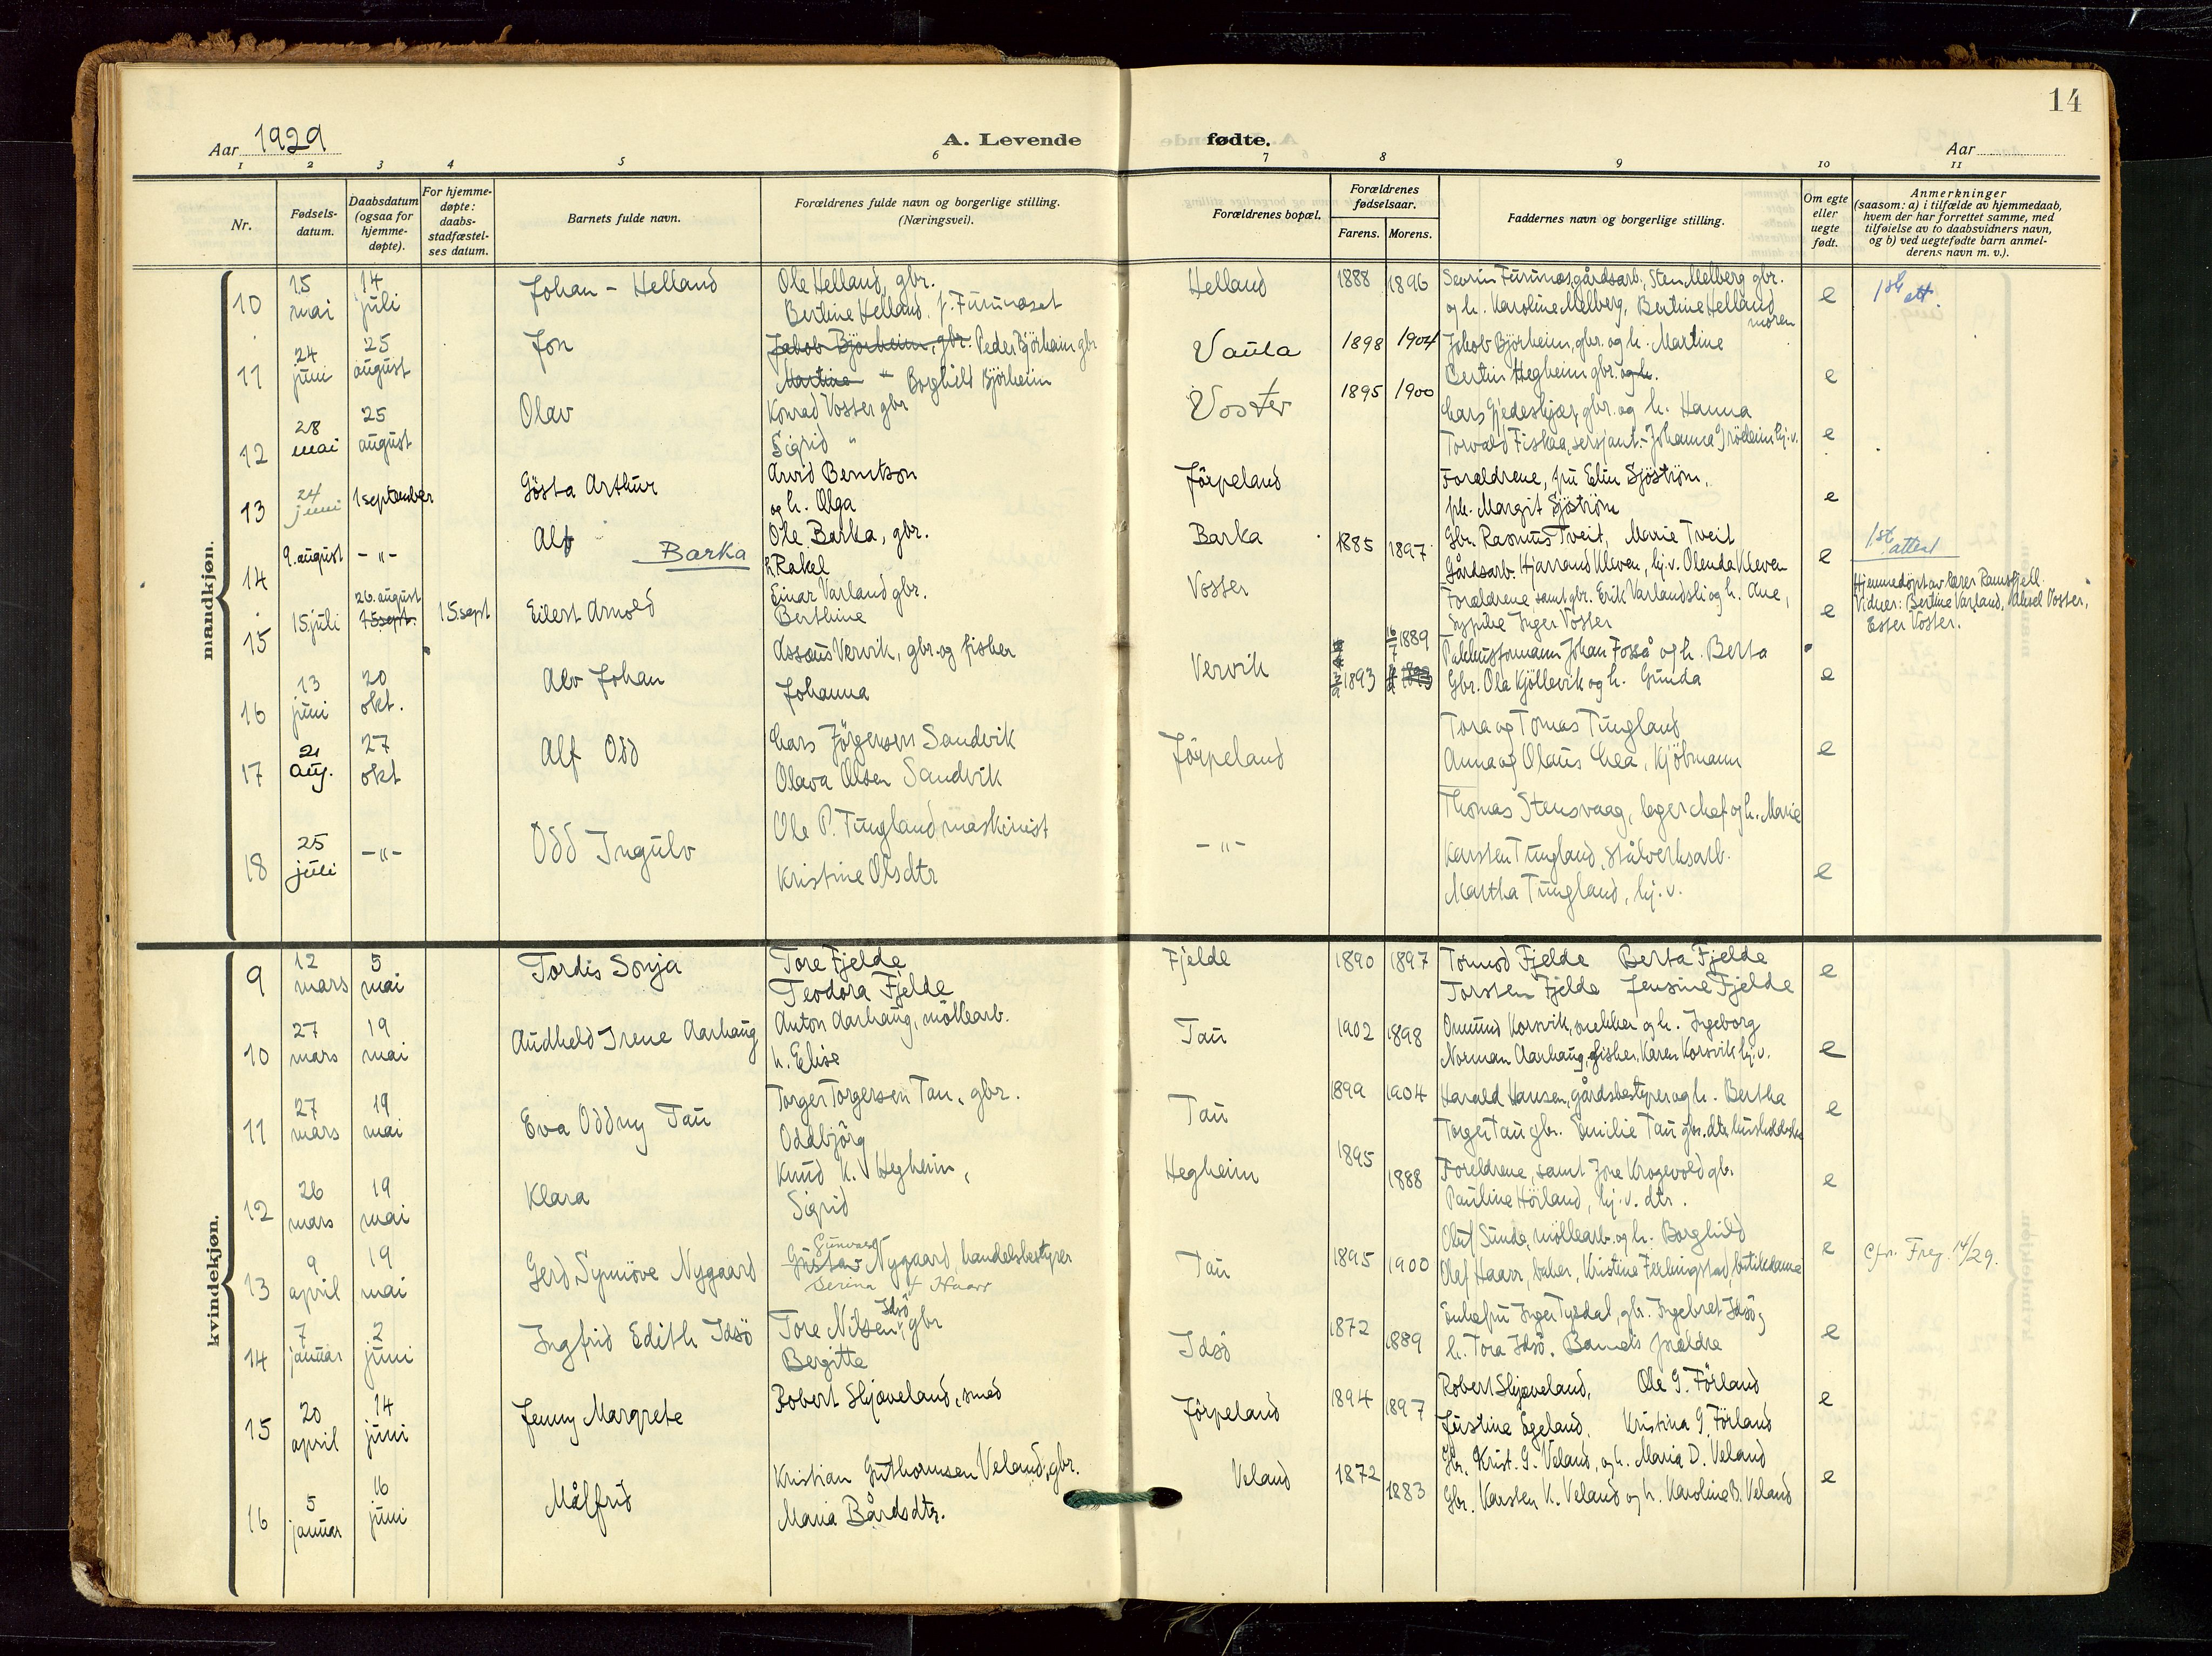 14
Aar 1929
A. Levende fødte.
Aar
1 2 3 4 5 6 7 8 9 10 11
Nr.
Fødsels-
datum.
Daabsdatum
(ogsaa for
hjemme-
døpte).
For hjemme-
døpte:
daabs-
stadfæstel-
ses datum.
Barnets fulde navn.
Forældrenes fulde navn og borgerlige stilling.
(Næringsvei).
Forældrenes bopæl.
Forældrenes
fødselsaar.
Farens. Morens.
Faddernes navn og borgerlige stilling.
Om egte
eller
uegte
født.
Anmerkninger
(saasom: a) i tilfælde av hjemmedaab,
hvem der har forrettet samme, med
tilføielse av to daabsvidners navn,
og b) ved uegtefødte barn anmel-
derens navn m. v.).
mandkjøn.
10 15 mai 14 juli Johan - Helland
Ole Helland, gbr.
Bertine Helland f. Furunæset
Helland 1888 1896
Sevrin Furunæs, gårdsarb., Sten Melberg gbr.
og h. Karoline Melberg, Bertine Helland
moren
e 1st att.
11 24 juni 25 august Jon
Jakob Bjørheim, gbr. Peder Bjørheim gbr
Martine " Borghild Bjørheim
Vaula 1898 1904
Jakob Bjørheim, gbr. og h. Martine
Bertin Hegheim gbr. og h.
e
12 28 mai 25 august Olav
Konrad Voster gbr
Sigrid "
Voster 1895 1900
Lars Gjedeskjær, gbr. og h. Hanna
Torvald Fiskaa, sersjant. - Johanna Grødeim hj. v.
e
13 24 juni 1 september Gösta Arthur
Arvid Berntson
og h. Olga
Jörpeland
Foreldrene, fru Elin Sjöström,
frk. Margit Sjöström
e
14 9. august -"- Alf Barka
Ole Barka, gbr.
h. Rakel
Barka 1885 1897
Gbr. Rasmus Tveit, Marie Tveit
Gårdsarb. Hjarrand Kleven, hj. v. Olenda Kleven
e 1st attest
15 15. juli 26. august 15 sept. 15. sept Eilert Arnold
Einar Varland gbr.
Berthine
Vosser
Foreldrene samt gbr. Erik Varlandsli og h. Ane,
Sypike Inger Voster
e
Hjemmedøpt av lærer Ramsfjell.
Vidner: Bertine Varland, Aksel Voster,
Ester Voster.
16 13 juni 20 okt. Alv Johan
Assæus Vervik, gbr. og fisker
Johanna
Vervik 1893 16/7 1889
Pakkusformann Johan Fosså og h. Berta
Gbr. Ola Kjöllevik og h. Gunda
e
17 21 aug. 27 okt Alf Odd
Lars Jörgensen Sandvik
Olava Olsen Sandvik
Jörpeland
Tora og Tomas Tungland
Anna og Olaus Lea, Kjöbmann
e
18 25 juli -"- Odd Ingulv
Ole P. Tungland, maskinist
Kristine Olsdtr
-"-
Thomas Stensvaag, lagerchef og h. Marie
Karsten Tungland, Stålverksarb.
Martha Tungland, hj. v.
e
kvindekjøn.
9 12 mars 5 mai Tordis Sonja
Tore Fjelde
Teodora Fjelde
Fjelde 1890 1897
Tormod Fjelde Berta Fjelde
Torsten Fjelde Jensine Fjelde
e
10 27 mars 19 mai Audheld Irene Aarhaug
Anton Aarhaug, möllearb.
h. Elise
Tau 1902 1898
Omund Korsvik, snekker og h. Ingeborg
Norman Aarhaug, fisker, Karen Korsvik hj. v.
e
11 27 mars 19 mai Eva Oddny Tau
Torger Torgersen Tau, gbr.
Oddbjörg
Tau 1899 1904
Harald Hansen, gårdsbestyrer og h. Bertha
Torger Tau gbr. Emilie Tau gbr. dtr.
e
12 26 mars 19 mai Klara
Knud K. Hegheim,
Sigrid
Hegheim 1895 1888
Foreldrene, samt Jone Krogevold gbr.
Pauline Hörland, hj. v. dtr.
e
13 9 april 19 mai Gerd Synnöve Nygaard
Gunvald
Gustav Nygaard, handelsbestyrer
Serina f Haarr
Tau 1895 1900
Oluf Sunde, möllearb. og h. Borghild
Olaf Haarr, baker, Kristine Ferkingstad, butikdame
e cfr. Freg. 14/29.
14 7 januar 2 juni Ingfrid Edith Idsö
Idsö
Tore Nilsen, gbr
Bergitte
Idsö 1872 1889
Enkefru Inger Tysdal, gbr. Ingebret Idsö,
h. Tora Idsö. Barnets foreldre
e
15 20 april 14 juni Jenny Margrete
Robert Skjæveland, smed
Jörpeland 1894 1897
Robert Skjæveland, Ole G. Förland
Justine Egeland. Kristina G. Förland
e
16 5 januar 16 juni Målfrid
Kristian Guthormsen Veland, gbr.
Maria Bårdsdtr.
Veland 1872 1883
Gbr. Krist. G. Veland, og h. Maria D. Veland
Gbr. Karsten K. Veland og h. Karoline B. Veland
e